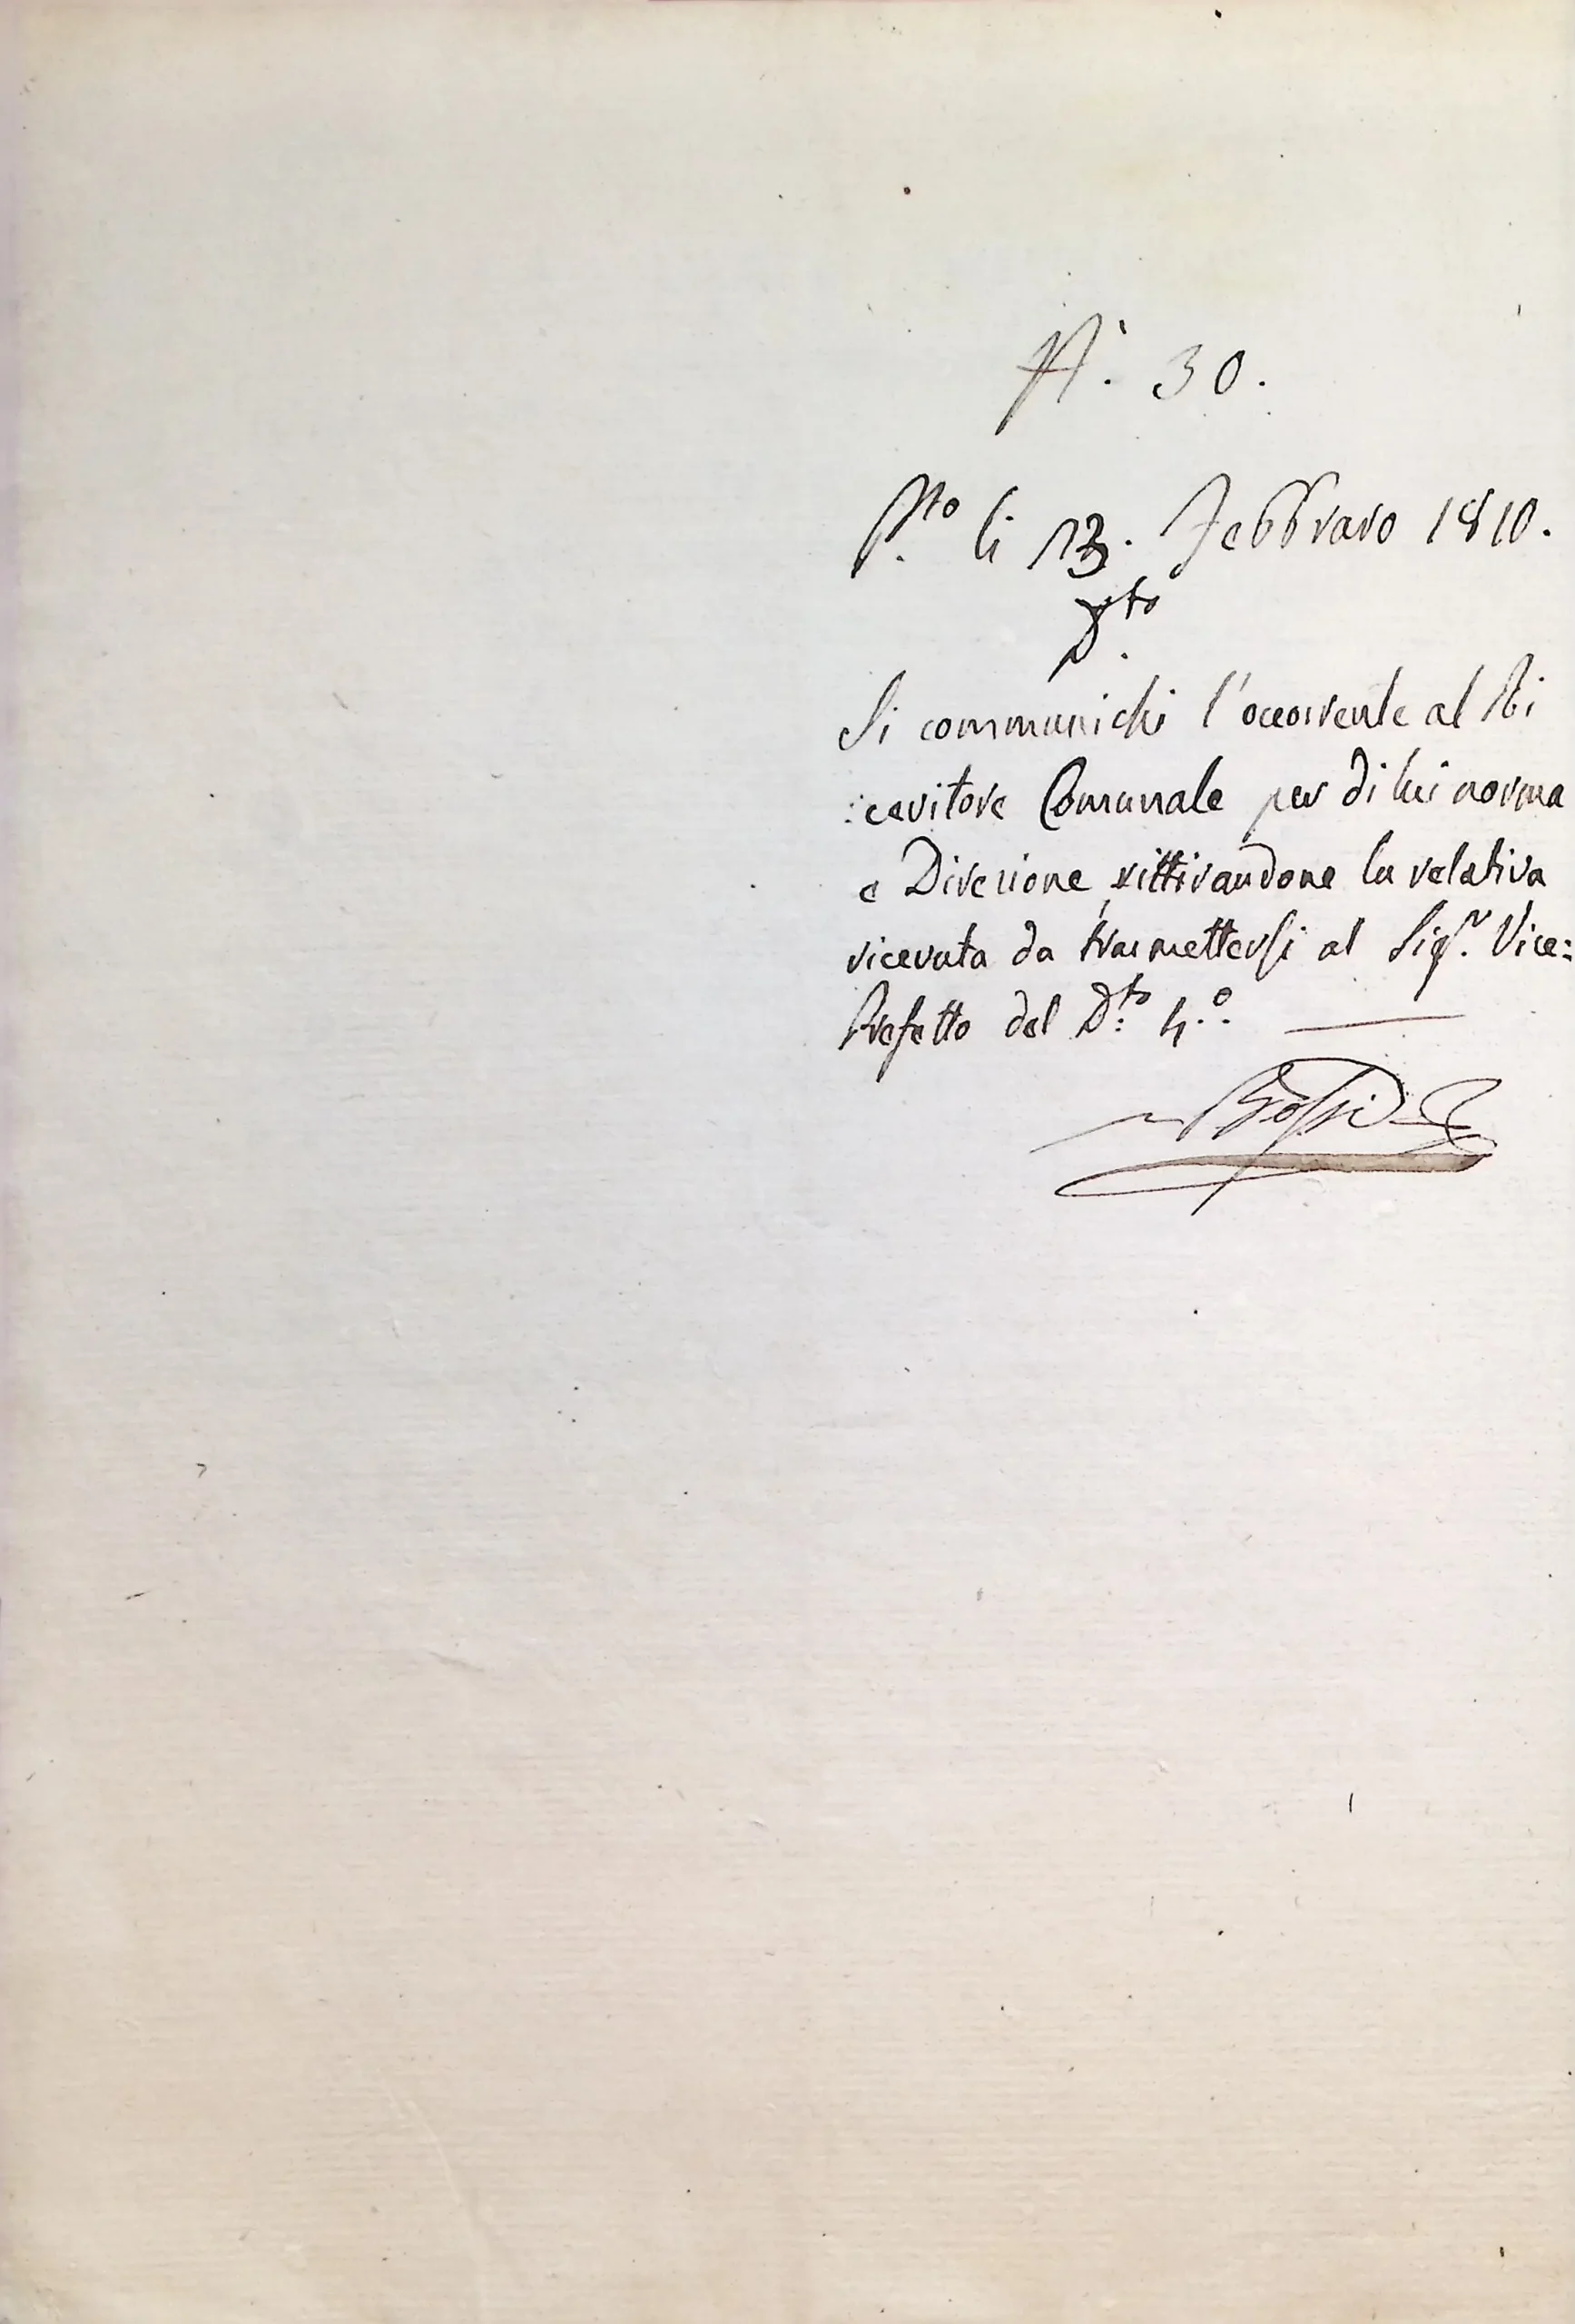 N°. 30.
P.to li 13. Febbraro 1810.
D.to
Si communichi l'occorrente al Ri
:cevitore Comunale per di lui norma
e Direzione rittirandone la relativa
ricevuta da trasmettersi al Sig.r Vice:
Prefetto del D:to 4.°